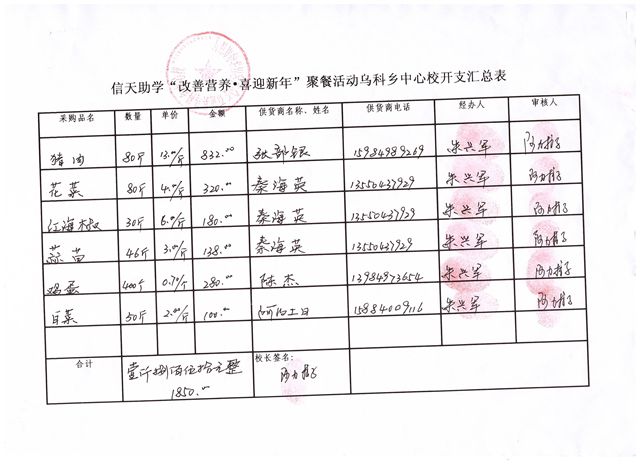 信天助学“改善营养•喜迎新年”聚餐活动乌科乡中心校开支汇总表
采购品名 数量 单价 金额 供货商名称、姓名 供货商电话 经办人 审核人
猪肉 80斤 13.00/斤 832.00 张部银 15984989269 朱兴军
花菜 80斤 4.00/斤 320.00 秦海英 13550437929 朱兴军
红海椒 30斤 6.00/斤 180.00 秦海英 13550437929 朱兴军
蒜苗 46斤 3.00/斤 138.00 秦海英 13550437929 朱兴军
鸡蛋 400斤 0.70/斤 280.00 陈杰 13984973654 朱兴军
白菜 50斤 2.00/斤 100.00 15884009116 朱兴军
合计 壹仟捌佰伍拾元整 校长签名:
1850.00